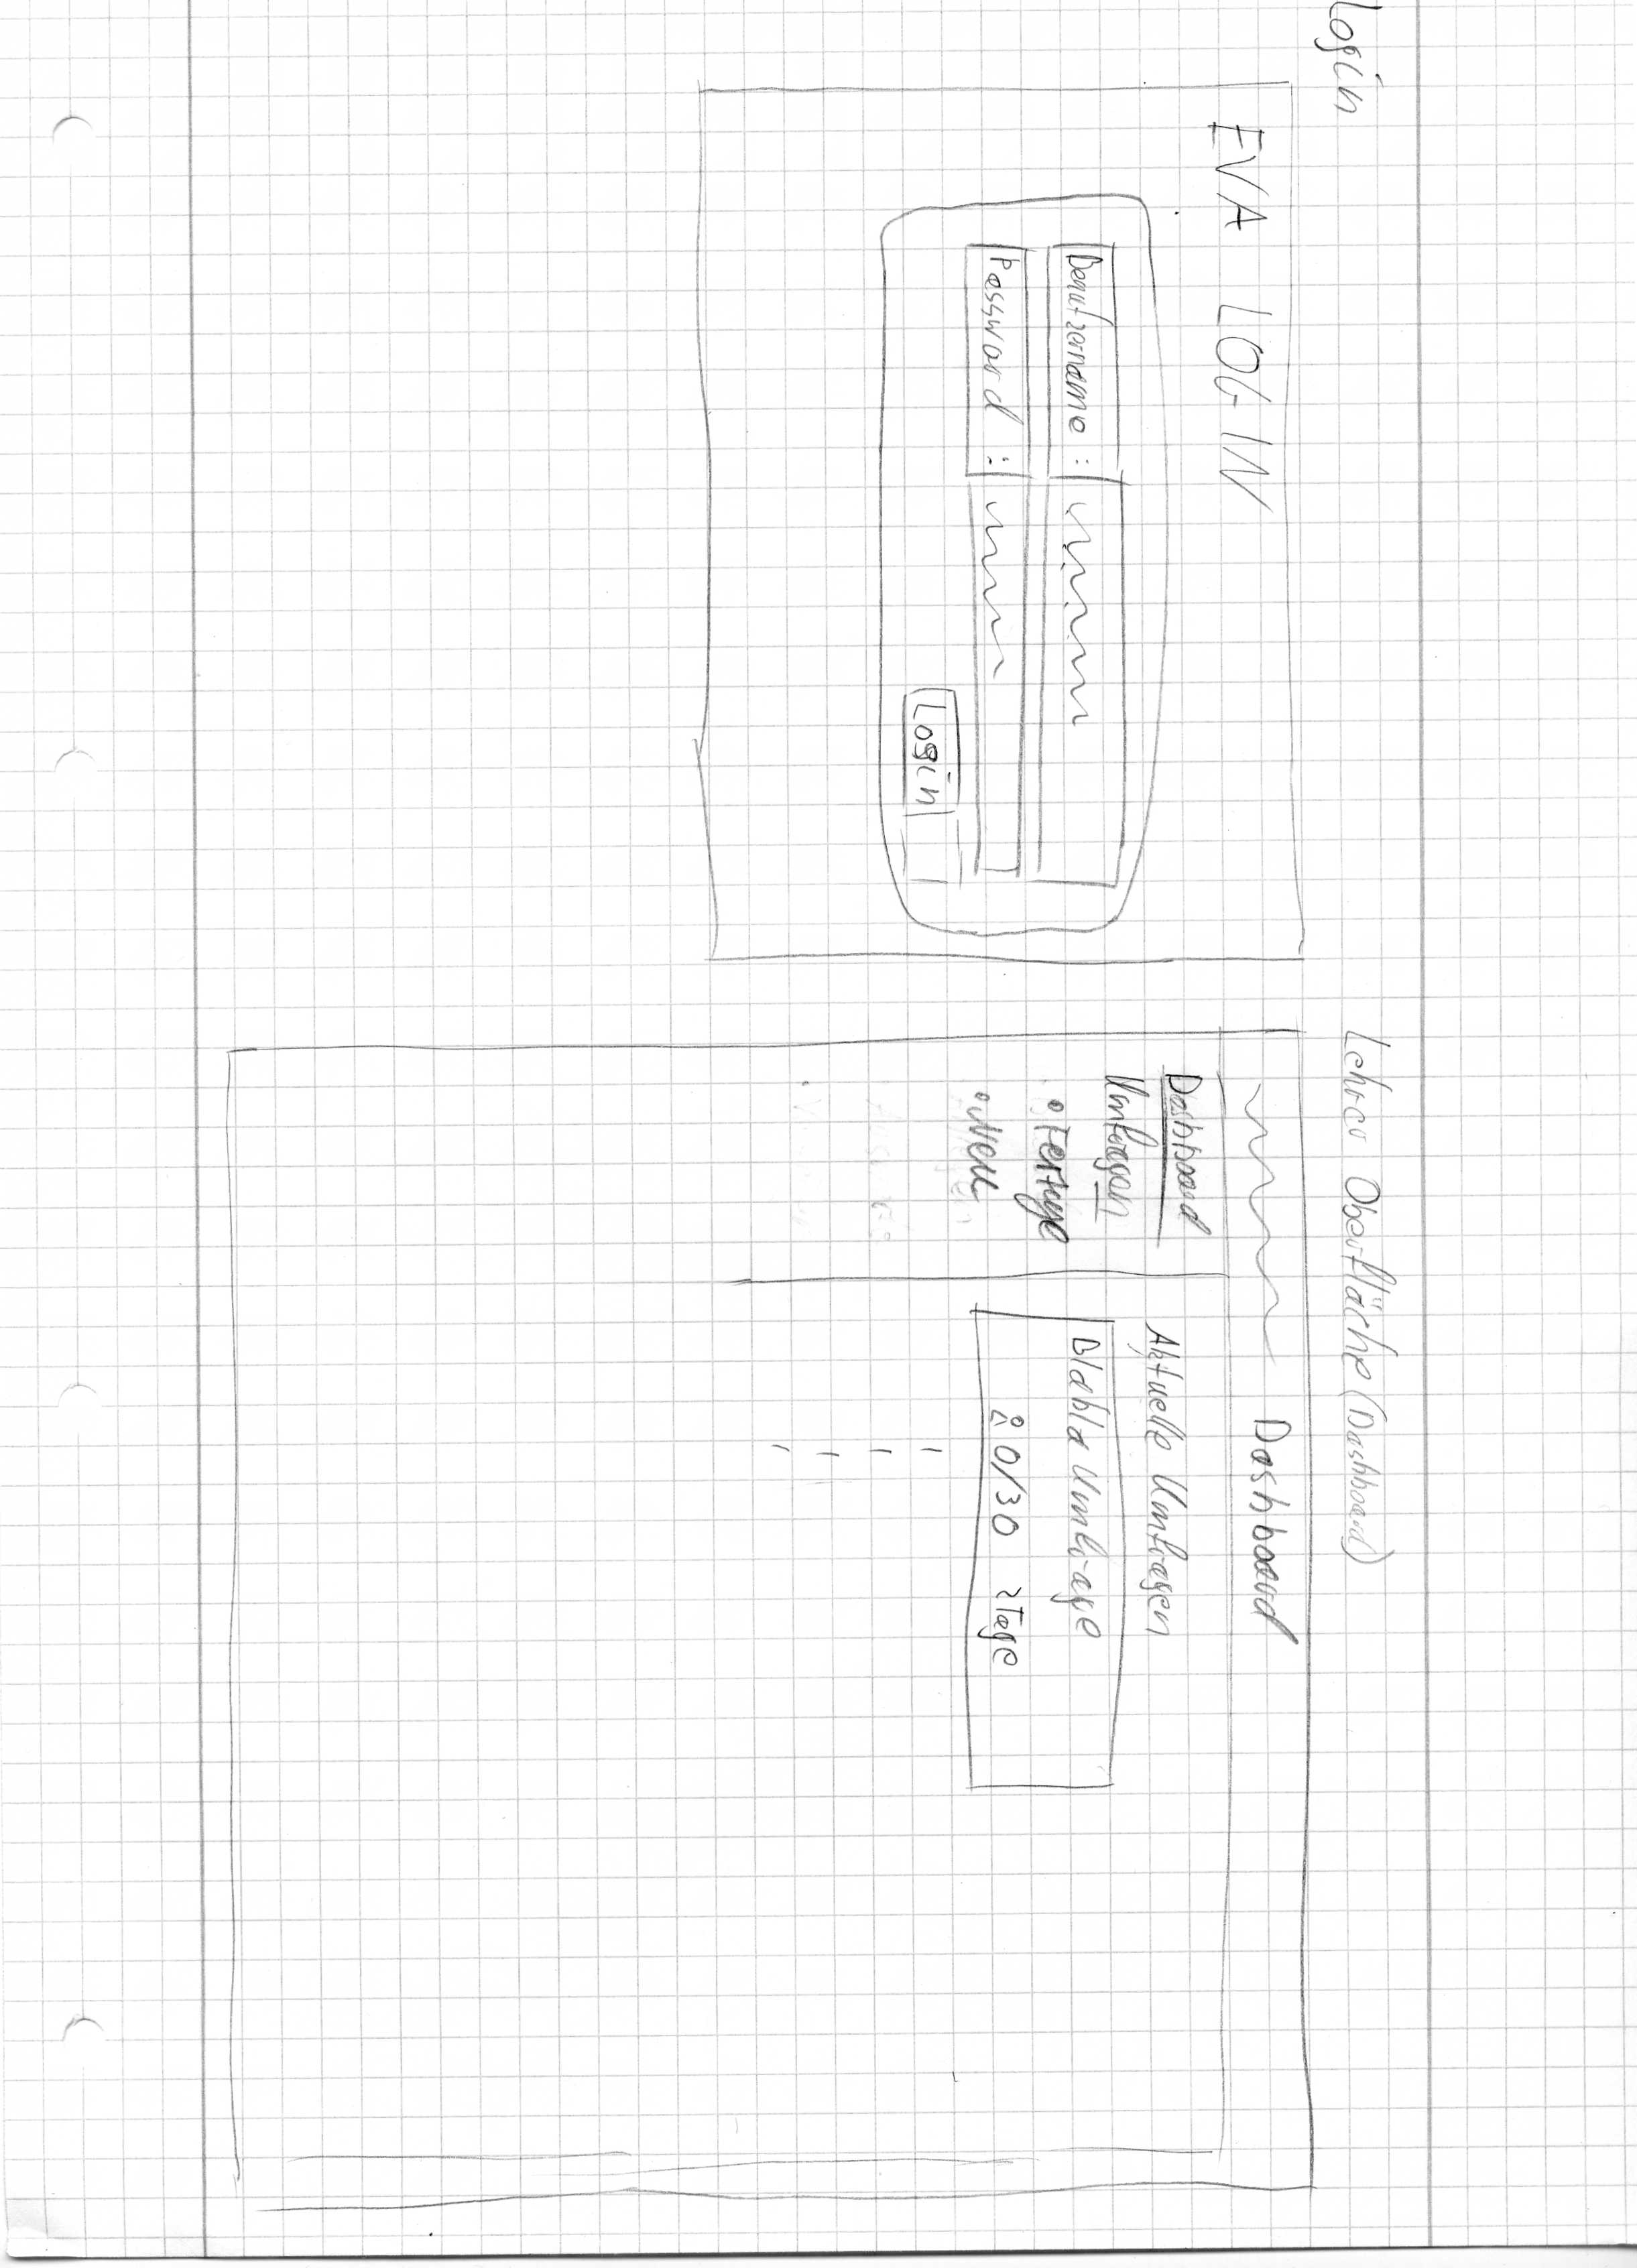 Login
EVA LOG-IN
Benutzername :
Password :
Login
Lehrer Oberfläche (Dashboard)
Dashboard
Dashboard
Umfragen
• Fertige
• Neu
Aktuelle Umfragen
Blabla Umfrage
0/30 2 Tage